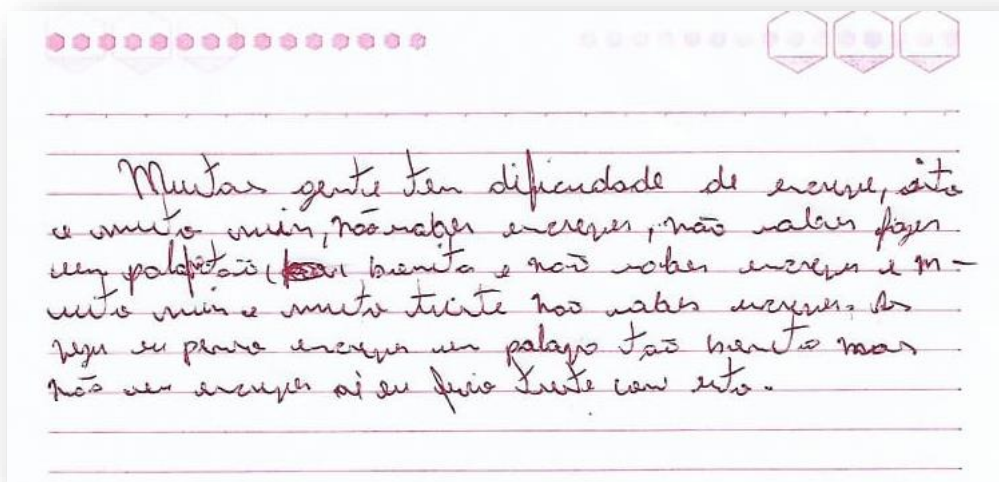 Muitas gente tem dificudade de escreve, isto
e muito ruin, não saber escrever, não saber fazer
um tão bonita e não saber escrever e m-
uito ruin e muito triste não saber escrever. As
vezes eu penso escrever um palavo tão bonito mas
não sei escrever ai eu ficio triste com isto.